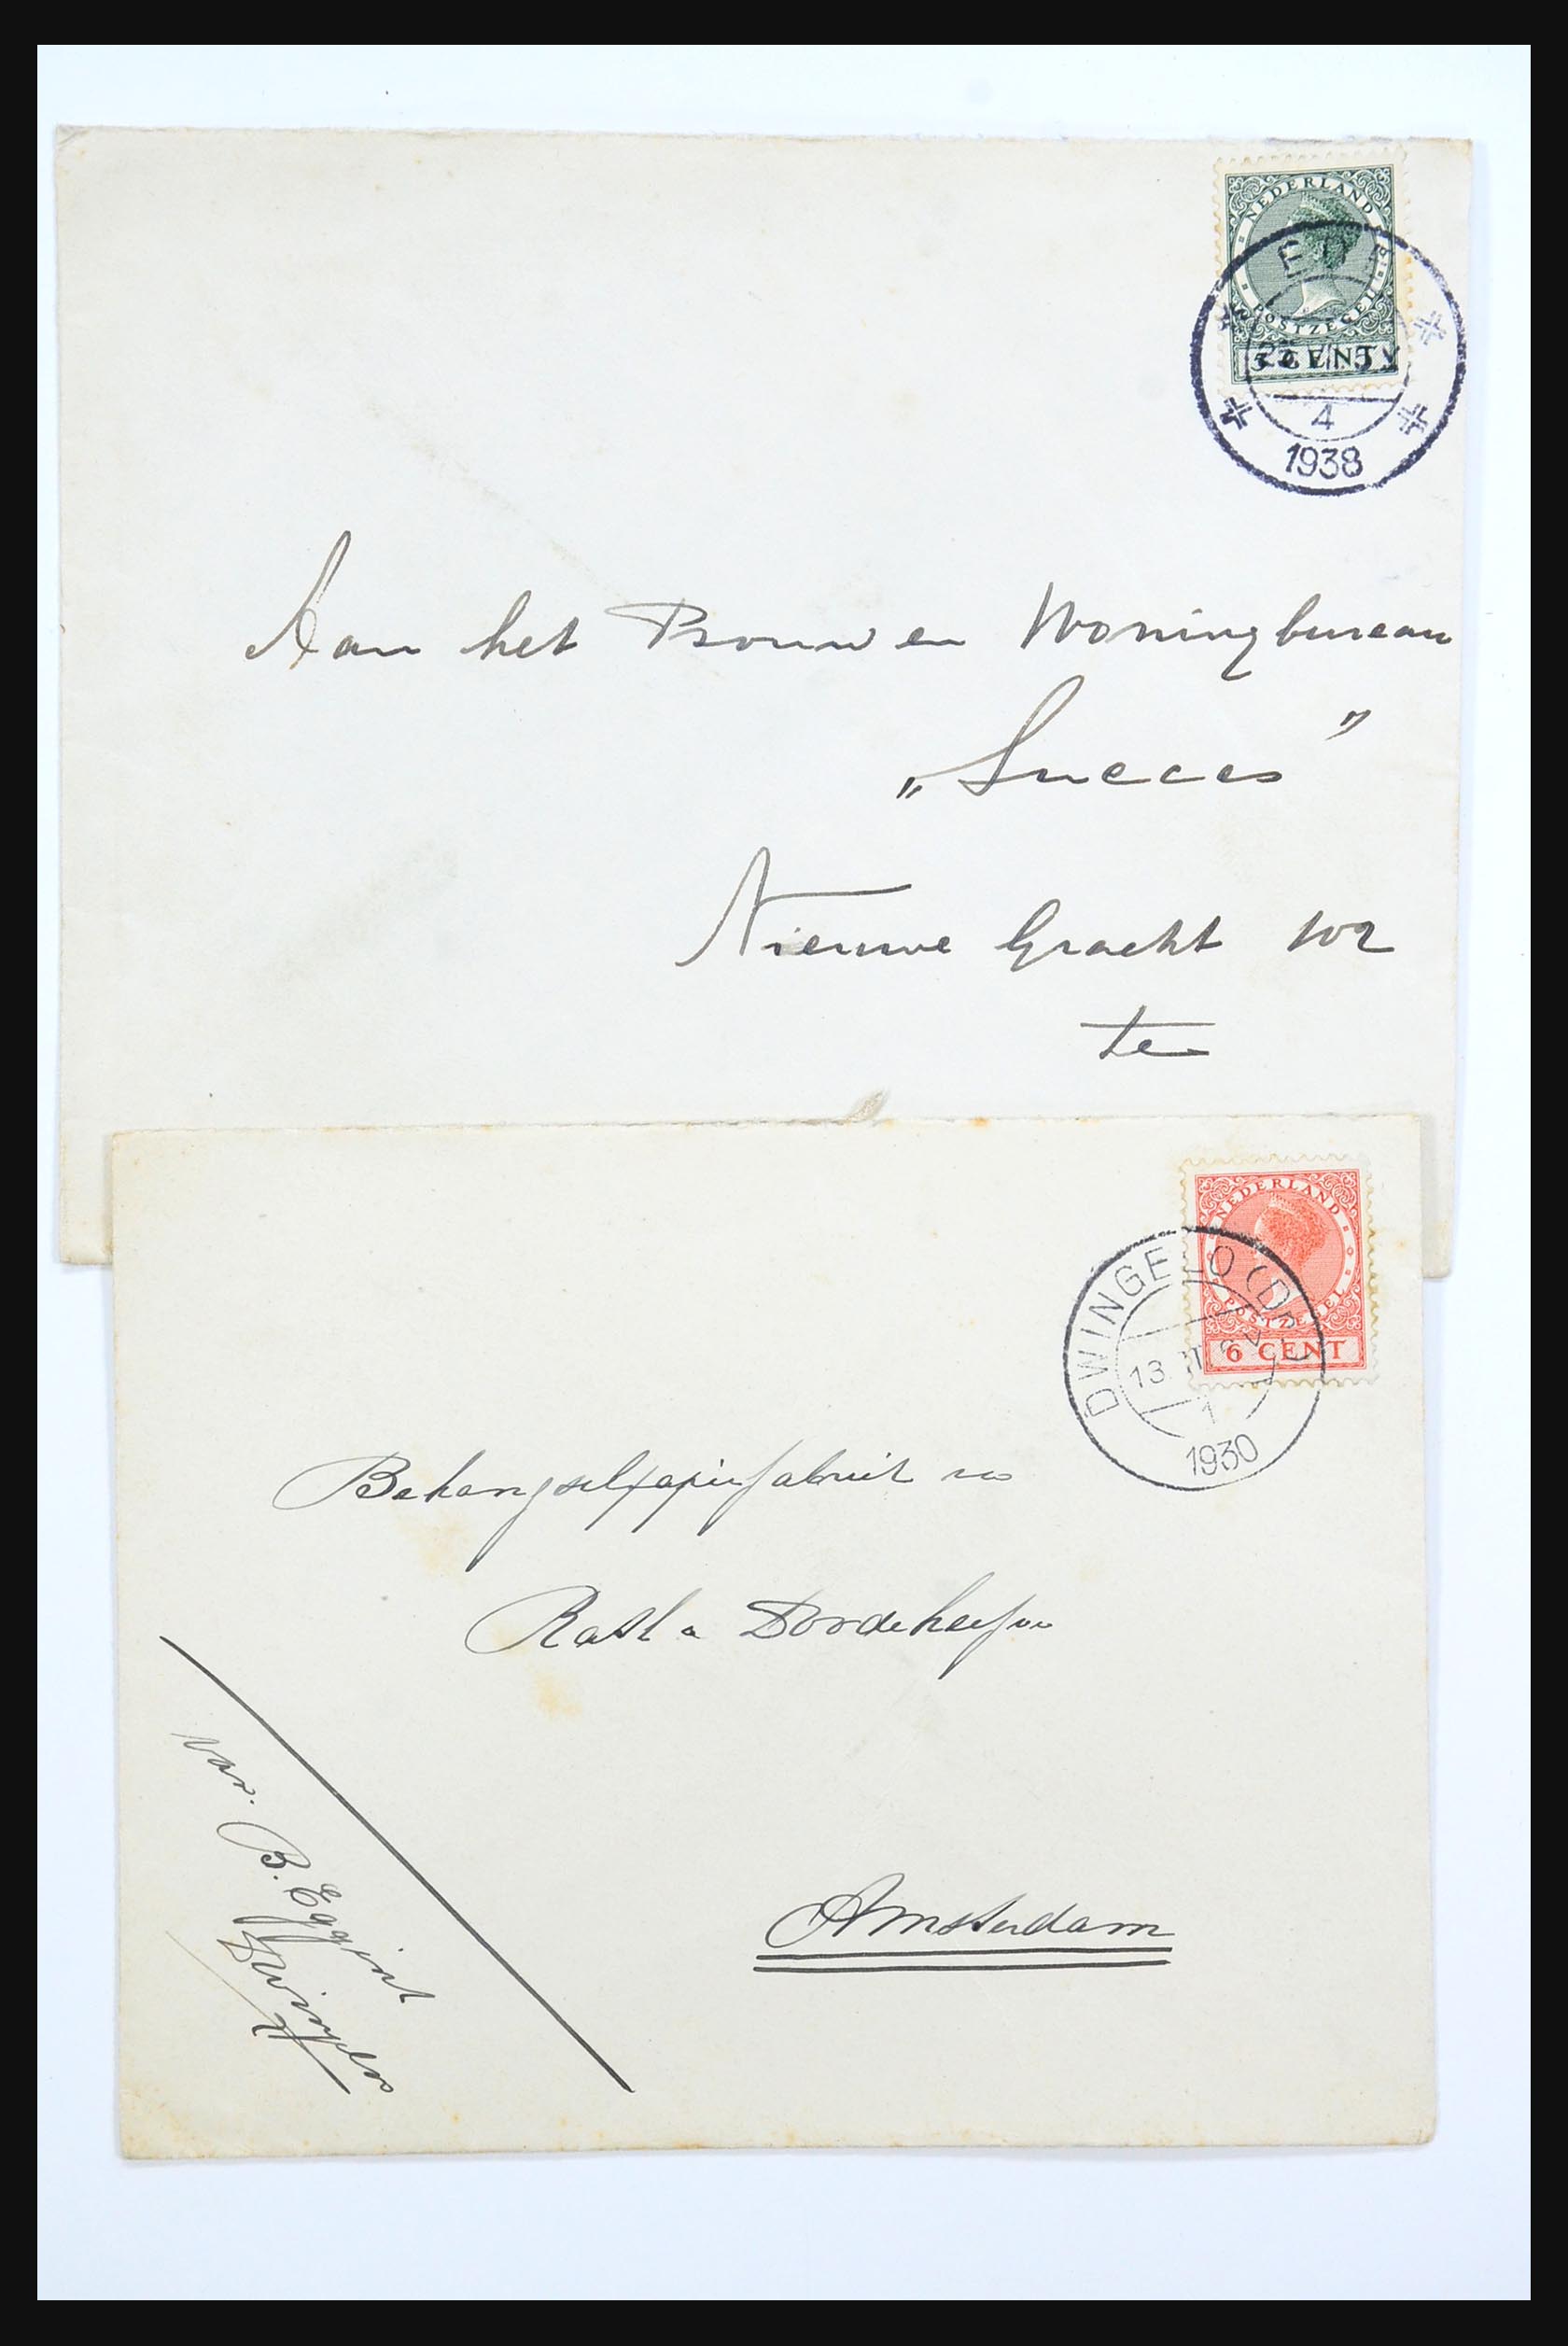 NEDERLAND
POSTZEGEL
CENT
4
1938
Aan het Bouw en Woningbureau
„Succes”
Nieuwe Gracht 102
te
NEDERLAND
POSTZEGEL
6 CENT
DWINGELO (Dr.)
13
1
1930
Behangselpapierfabriek
Rath &
Amsterdam
van. B. Eggink
Dwingelo